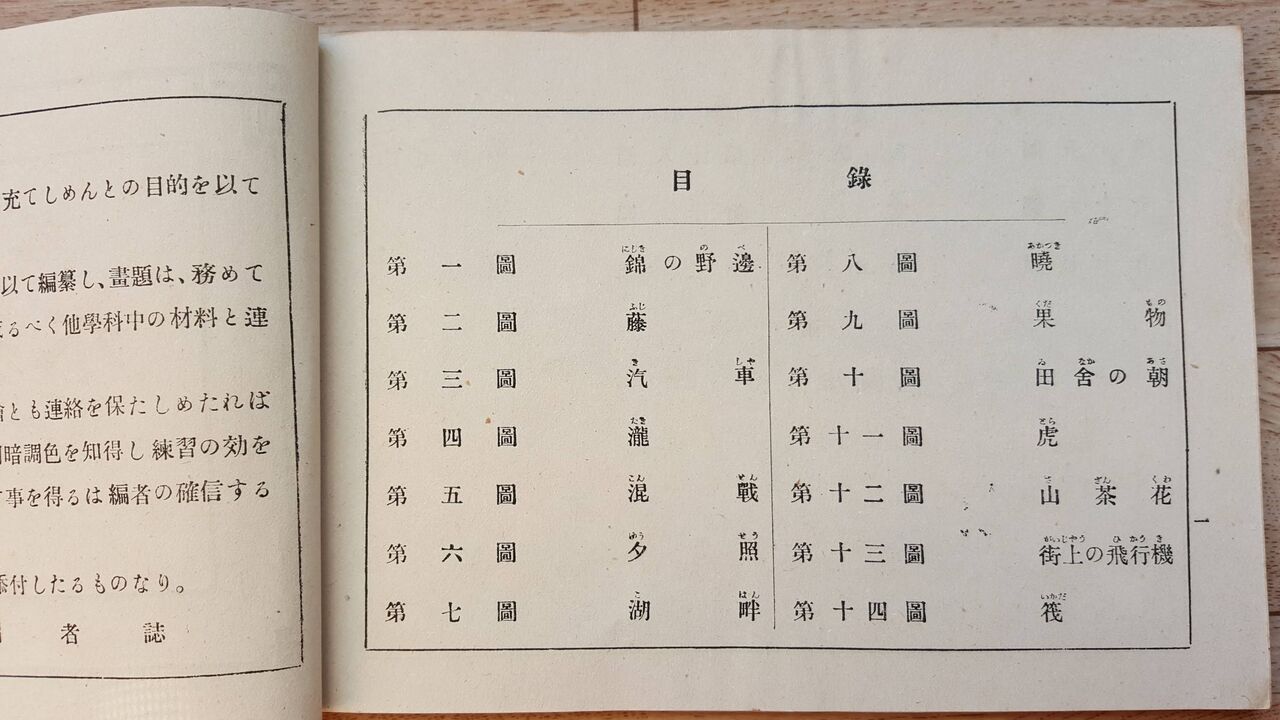 充てしめんとの目的を以て
以て編纂し、畫題は、務めて
るべく他學科中の材料と連
とも連絡を保たしめたれば
暗調色を知得し練習の効を
事を得るは編者の確信する
添付したるものなり。
者誌
目錄
第一圖 錦の野邊
第二圖 藤
第三圖 汽車
第四圖 瀧
第五圖 混戰
第六圖 夕照
第七圖 湖畔
第八圖 曉
第九圖 果物
第十圖 田舍の朝
第十一圖 虎
第十二圖 山茶花
第十三圖 街上の飛行機
第十四圖 筏
一